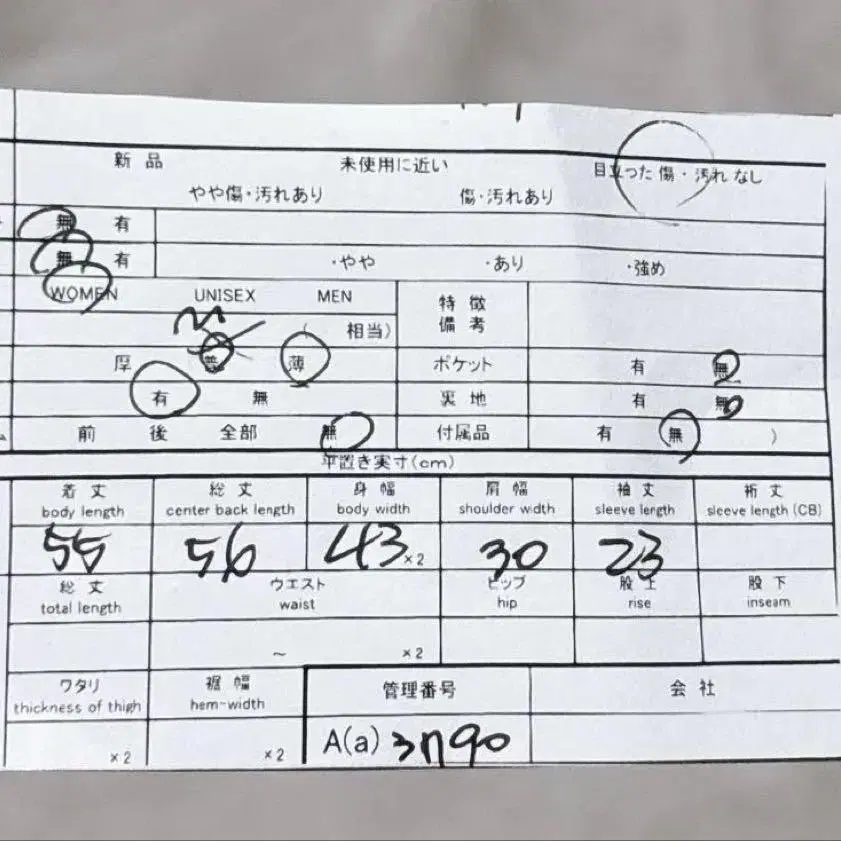 新品 未使用に近い 目立つた 傷・汚れ なし
やや傷・汚れあり 傷・汚れあり
無 有
無 有 ・やや ・あり ・強め
WOMEN UNISEX MEN 特徴
備考
M ( 相当)
厚 普 薄 ポケット 有 無
有 無 裏地 有 無
前 後 全部 無 付属品 有 無 )
平置き実寸(cm)
着丈 総丈 身幅 肩幅 袖丈 裄丈
body length center back length body width shoulder width sleeve length sleeve length (CB)
55 56 43 ×2 30 23
総丈 ウエスト ヒップ 股上 股下
total length waist hip rise inseam
~ ×2
ワタリ 裾幅 管理番号 会社
thickness of thigh hem-width
×2 ×2 A(a)